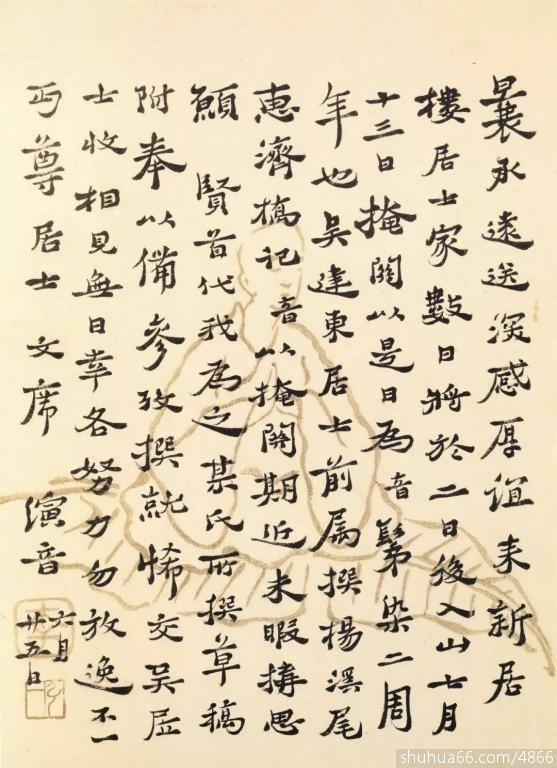 曩承遠送深感厚誼来新居
樓居士家數日將於二日後入山七月
十三日掩關以是日為音鬀染二周
年也吴建東居士前属撰楊溪尾
惠濟橋記音以掩關期近未暇搆思
願 賢首代我為之某氏所撰草稿
附奉以備參攷撰就希交吴居
士收相見無日幸各努力勿放逸不一
丏尊居士 文席 演音
六月
廿五日
shuhua66.com/4866